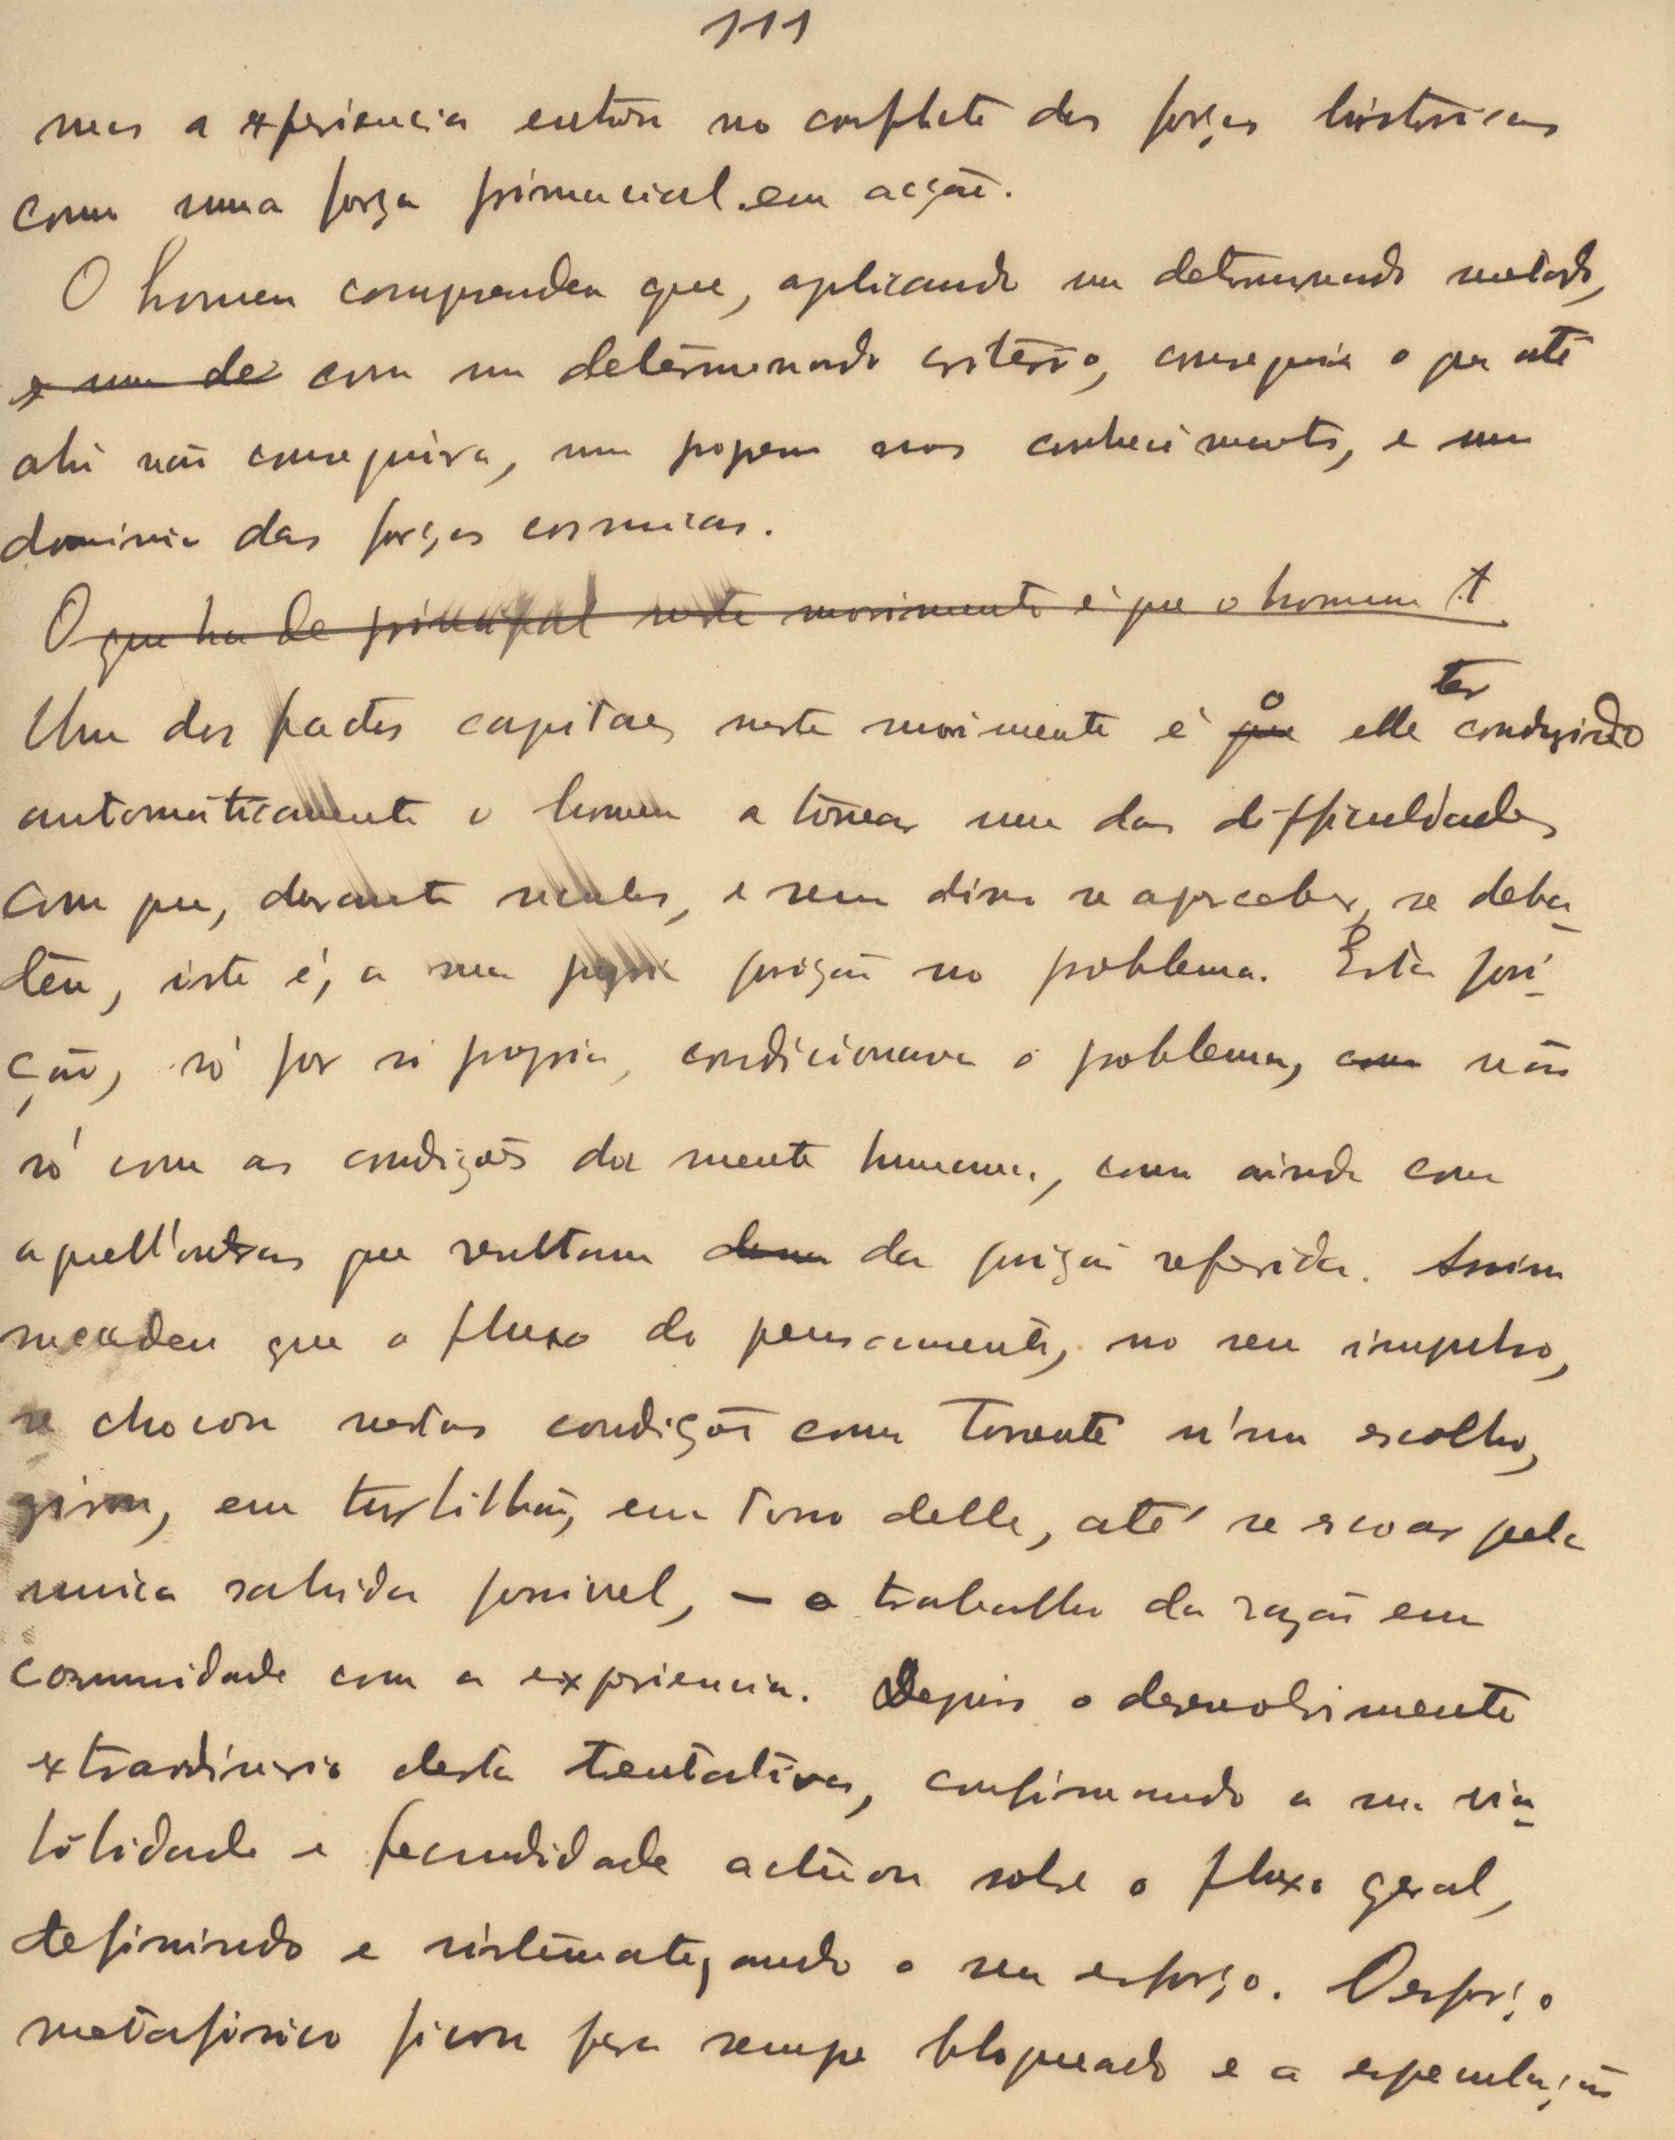 111
mas a experiencia entrou no conflicto das forças historicas
como uma força primacial em acção.
O homem comprendeu que, aplicando um determinado metodo,
e um de com um determinado criterio, conseguia o que até
ahi não conseguira, um progresso nos conhecimentos, e um
dominio das forças cosmicas.
O que ha de principal neste movimento é que o homem t
Um dos factos capitaes neste movimento é que o elle ter conduzido
automáticamente o homem a tornear uma das difficuldades
com que, durante seculos, e sem disso se aperceber, se deba-
teu, isto é, a sua posição no problema. Esta posi-
ção, só por si propria, condicionava o problema, com não
só com as condições da mente humana, como ainda com
aquell'outras que resultam da posição referida. Assim
succedeu que o fluxo do pensamento, no seu impulso,
se chocou nestas condições como torrente n'um escolho,
girou, em turbilhão, em torno delle, até se escoar pela
unica sahida possivel, — o trabalho da razão em
comunidade com a experiencia. Depois o desenvolvimento
extraordinario desta tentativa, confirmando a sua via-
bilidade e fecundidade actuou sobre o fluxo geral,
definindo e sistematizando o seu esforço. O esforço
metafisico ficou para sempre bloqueado e a especulação